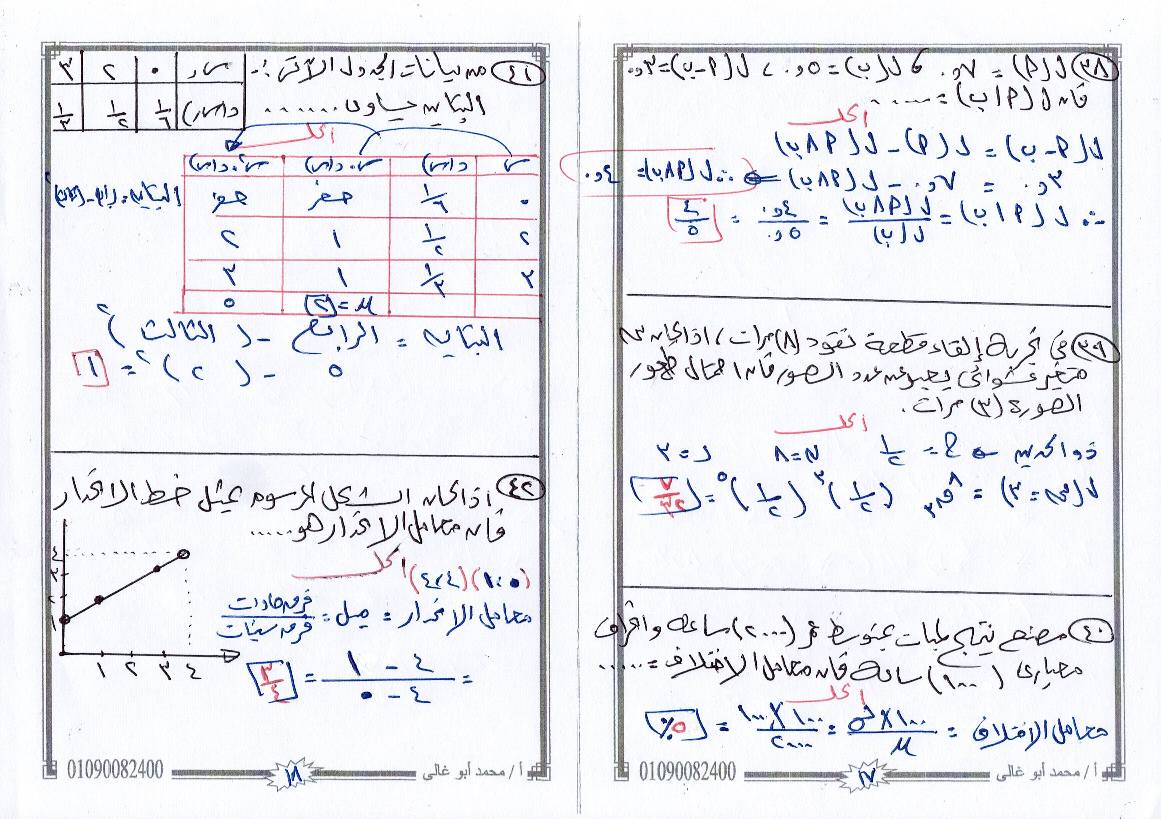 ٣٨) ل(P) = ٧و. ، ل(ب) = ٥و. ، ل(P-ب) = ٣و.
فإن ل(P|ب) = ......
الحل
ل(P-ب) = ل(P) - ل(P∧ب)
٣و. = ٧و. - ل(P∧ب) ⇐ ∴ ل(P∧ب) = ٤و.
∴ ل(P|ب) = ل(P∧ب)/ل(ب) = ٤و./٥و. = ٤/٥
٣٩) في تجربة إلقاء قطعة نقود (٨) مرات ، إذا كان س
متغير عشوائي يعبر عن عدد الصور فإن احتمال ظهور
الصورة (٣) مرات .
الحل
ذو الحدين ← ح = ١/٢ ن = ٨ ر = ٣
ل(س = ٣) = ٨ق٣ (١/٢)٣ (١/٢)٥ = ٧/٣٢
٤٠) مصنع ينتج لمبات بمتوسط عمر (٢٠٠٠) ساعة وانحراف
معياري (١٠٠) ساعة فإن معامل الاختلاف = .....
الحل
معامل الاختلاف = σ×١٠٠/μ = ١٠٠×١٠٠/٢٠٠٠ = ٥%
أ / محمد أبو غالى ١٧ 01090082400
٤١) من بيانات الجدول الآتي :-
س ٠ ٢ ٣
د(س) ١/٦ ١/٢ ١/٣
التباين يساوى ......
الحل
س د(س) س.د(س) س٢.د(س)
٠ ١/٦ صفر صفر
٢ ١/٢ ١ ٢
٣ ١/٣ ١ ٣
μ = ٢ ٥
التباين = الرابع - (الثالث)٢
٥ - (٢)٢ = ١
٤٢) إذا كان الشكل المرسوم يمثل خط الانحدار
فإن معامل الانحدار هو .....
الحل
(٠،١) (٤،٤)
معامل الانحدار = ميل = فرق صادات/فرق سينات
= ٤ - ١/٤ - ٠ = ٣/٤
٤
٣
٢
١
١ ٢ ٣ ٤
أ / محمد أبو غالى ١٨ 01090082400